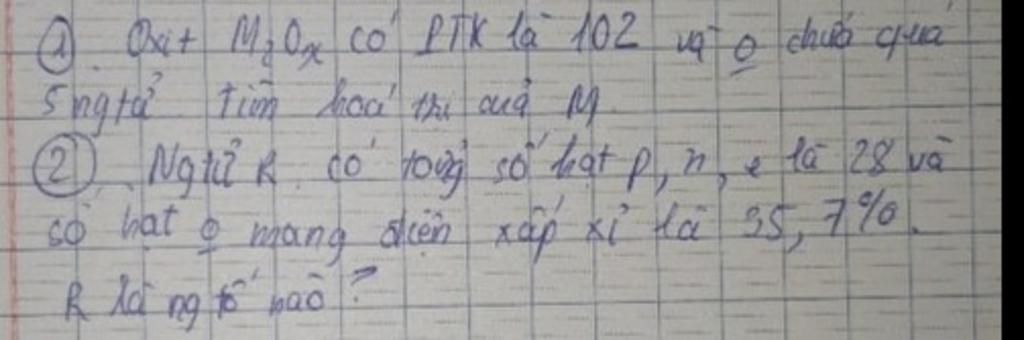 ① Oxit M₂Oₓ có PTK là 102 và o chứa quá
5 ngtử Tìm hoá trị của M.
② Ngtử R có tổng số hạt p, n, e là 28 và
số hạt o mang điện xấp xỉ là 35,7%.
R là ng tố nào?